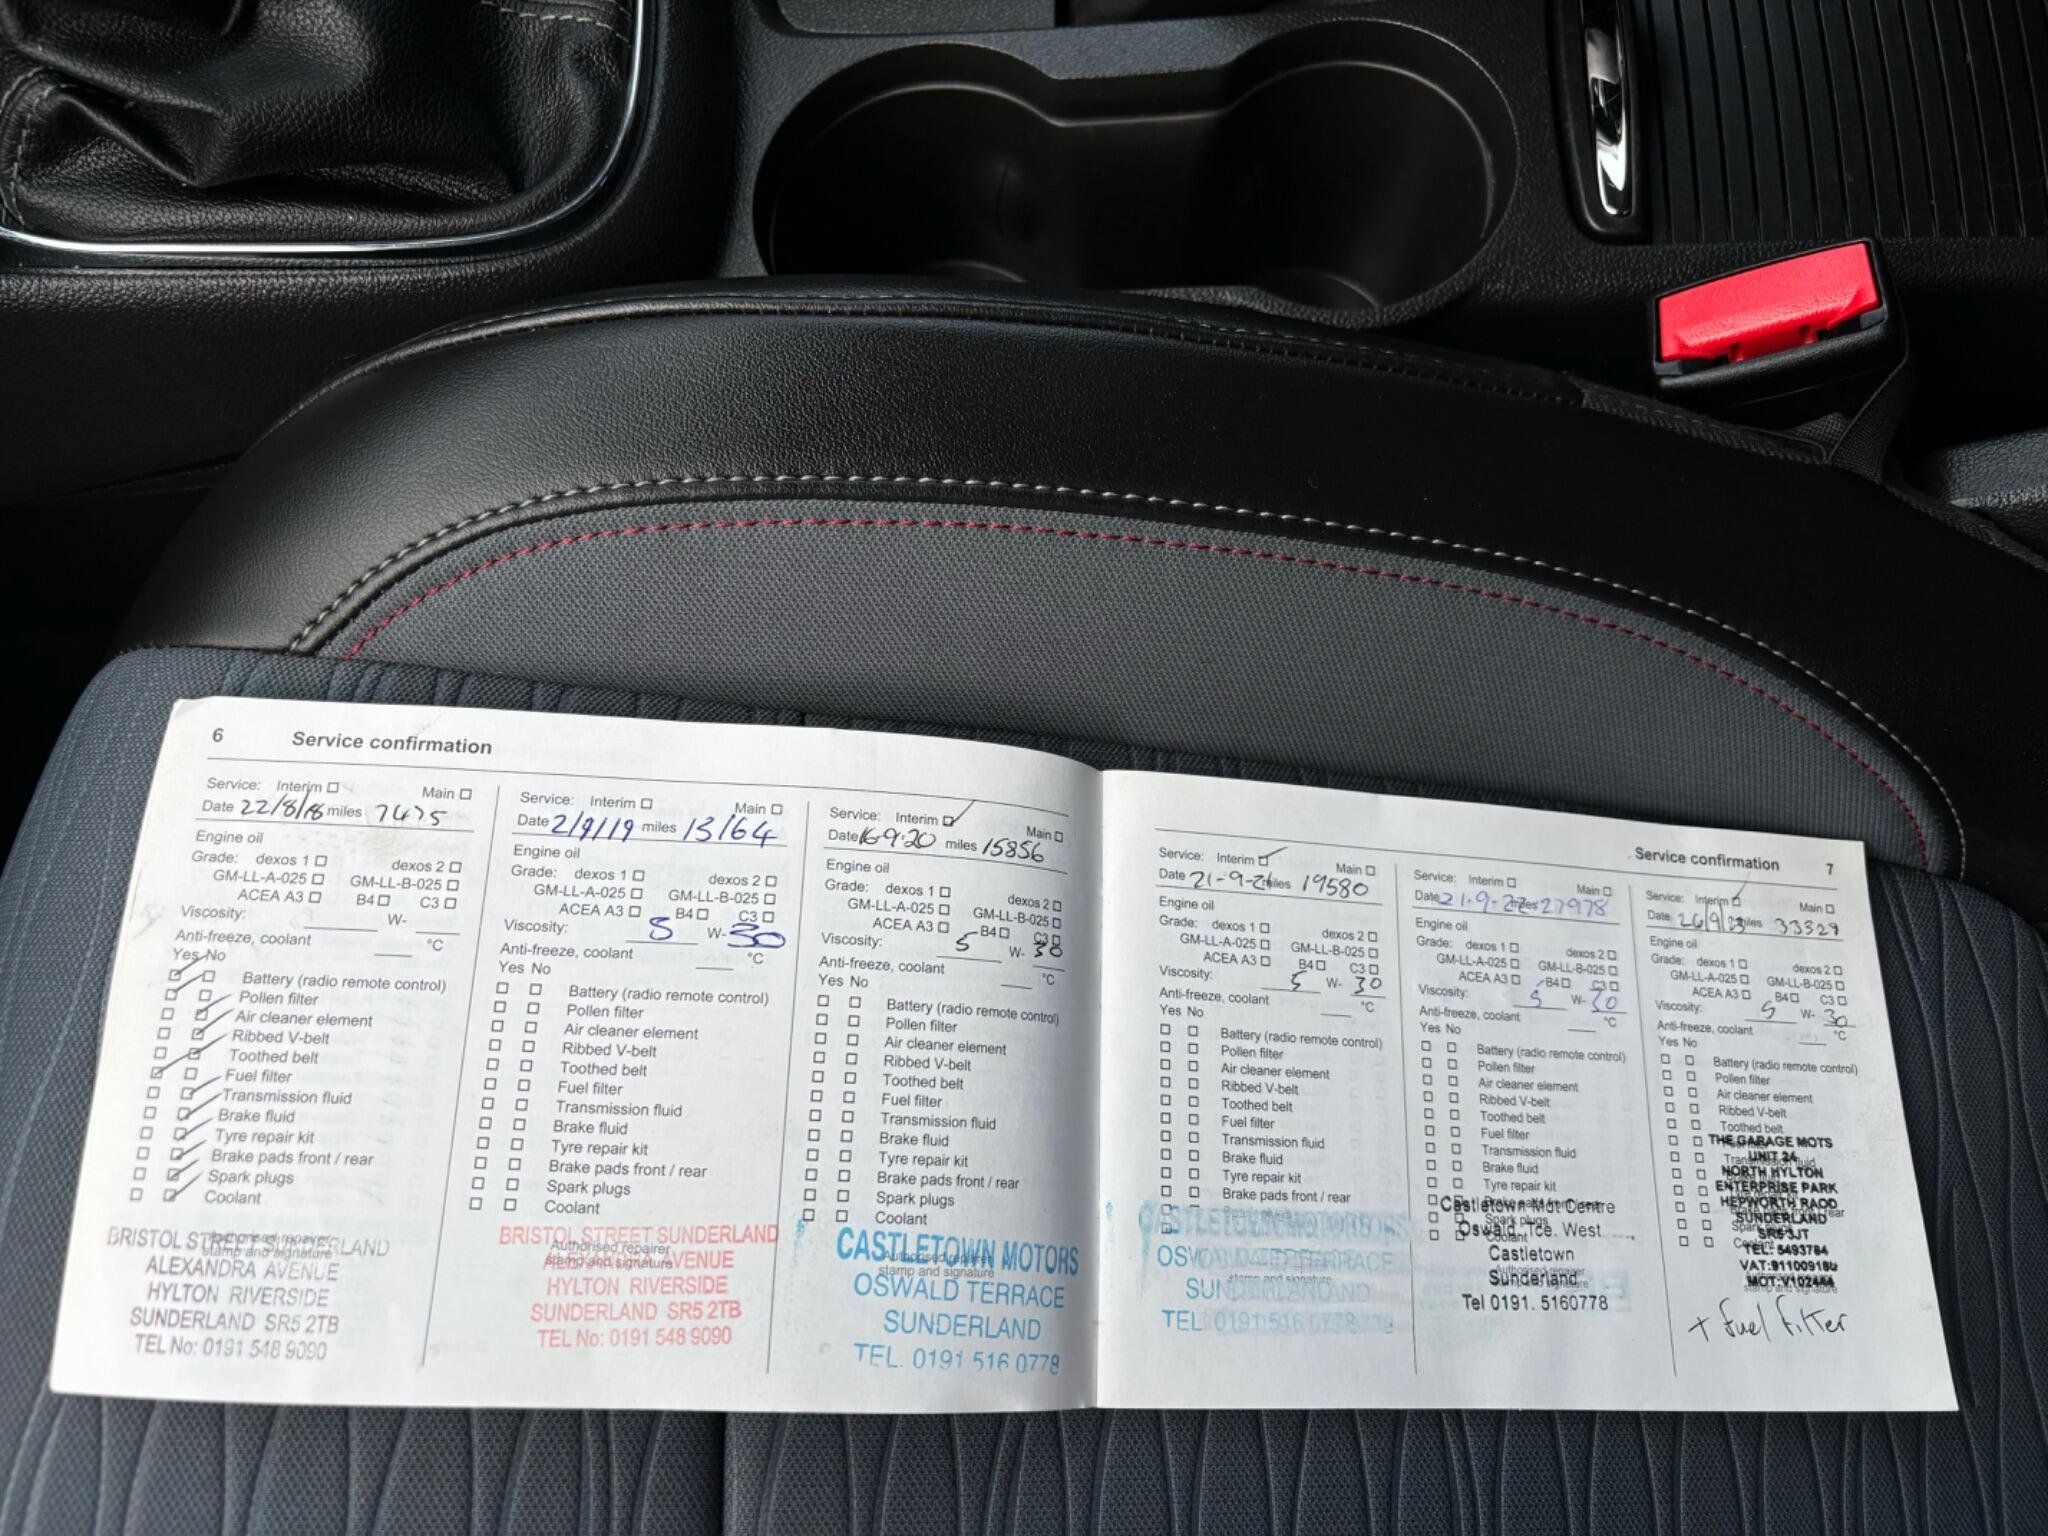 6 Service confirmation
Service: Interim Main
Date 22/8/18 miles 7475
Engine oil
Grade: dexos 1 dexos 2
GM-LL-A-025 GM-LL-B-025
ACEA A3 B4 C3
Viscosity: W-
Anti-freeze, coolant °C
Yes No
Battery (radio remote control)
Pollen filter
Air cleaner element
Ribbed V-belt
Toothed belt
Fuel filter
Transmission fluid
Brake fluid
Tyre repair kit
Brake pads front / rear
Spark plugs
Coolant
Authorised repairer
stamp and signature
BRISTOL STREET SUNDERLAND
ALEXANDRA AVENUE
HYLTON RIVERSIDE
SUNDERLAND SR5 2TB
TEL No: 0191 548 9090
Service: Interim Main
Date 2/9/19 miles 13164
Engine oil
Grade: dexos 1 dexos 2
GM-LL-A-025 GM-LL-B-025
ACEA A3 B4 C3
Viscosity: 5 W- 30
Anti-freeze, coolant °C
Yes No
Battery (radio remote control)
Pollen filter
Air cleaner element
Ribbed V-belt
Toothed belt
Fuel filter
Transmission fluid
Brake fluid
Tyre repair kit
Brake pads front / rear
Spark plugs
Coolant
Authorised repairer
stamp and signature
BRISTOL STREET SUNDERLAND
ALEXANDRA AVENUE
HYLTON RIVERSIDE
SUNDERLAND SR5 2TB
TEL No: 0191 548 9090
Service: Interim Main
Date 16-9-20 miles 15856
Engine oil
Grade: dexos 1 dexos 2
GM-LL-A-025 GM-LL-B-025
ACEA A3 B4 C3
Viscosity: 5 W- 30
Anti-freeze, coolant °C
Yes No
Battery (radio remote control)
Pollen filter
Air cleaner element
Ribbed V-belt
Toothed belt
Fuel filter
Transmission fluid
Brake fluid
Tyre repair kit
Brake pads front / rear
Spark plugs
Coolant
Authorised repairer
stamp and signature
CASTLETOWN MOTORS
OSWALD TERRACE
SUNDERLAND
TEL. 0191 516 0778
Service confirmation 7
Service: Interim Main
Date 21-9-21 miles 19580
Engine oil
Grade: dexos 1 dexos 2
GM-LL-A-025 GM-LL-B-025
ACEA A3 B4 C3
Viscosity: 5 W- 30
Anti-freeze, coolant °C
Yes No
Battery (radio remote control)
Pollen filter
Air cleaner element
Ribbed V-belt
Toothed belt
Fuel filter
Transmission fluid
Brake fluid
Tyre repair kit
Brake pads front / rear
stamp and signature
CASTLETOWN MOTORS
OSWALD TERRACE
SUNDERLAND
TEL 0191 516 0778
Service: Interim Main
Date 21-9-22 miles 27978
Engine oil
Grade: dexos 1 dexos 2
GM-LL-A-025 GM-LL-B-025
ACEA A3 B4 C3
Viscosity: 5 W- 30
Anti-freeze, coolant °C
Yes No
Battery (radio remote control)
Pollen filter
Air cleaner element
Ribbed V-belt
Toothed belt
Fuel filter
Transmission fluid
Brake fluid
Tyre repair kit
Brake pads front / rear
Spark plugs
Coolant
Authorised repairer
stamp and signature
Castletown Mot Centre
Oswald. Tce. West
Castletown
Sunderland
Tel 0191. 5160778
Service: Interim Main
Date 26/9/23 miles 33329
Engine oil
Grade: dexos 1 dexos 2
GM-LL-A-025 GM-LL-B-025
ACEA A3 B4 C3
Viscosity: 5 W- 30
Anti-freeze, coolant °C
Yes No
Battery (radio remote control)
Pollen filter
Air cleaner element
Ribbed V-belt
Toothed belt
Transmission fluid
Spark plugs
stamp and signature
THE GARAGE MOTS
UNIT 24
NORTH HYLTON
ENTERPRISE PARK
HEPWORTH RAOD
SUNDERLAND
SR5 3JT
TEL: 5493784
MOT:V102444
+ fuel filter